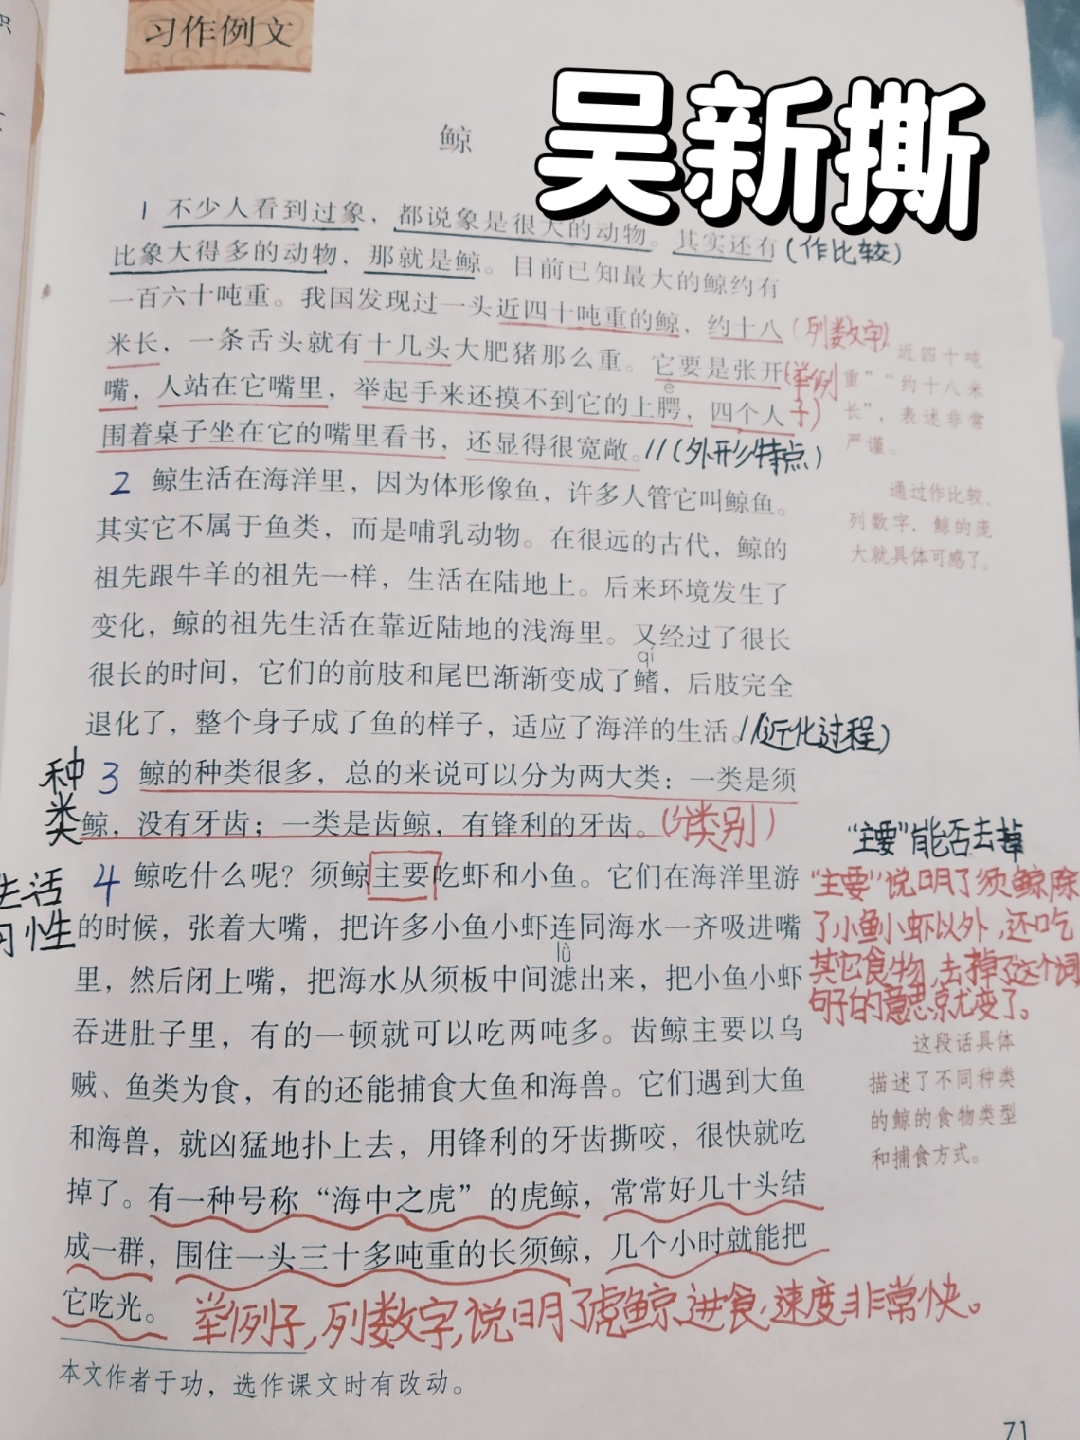 习作例文
吴新撕
鲸
1 不少人看到过象，都说象是很大的动物。其实还有（作比较）
比象大得多的动物，那就是鲸。目前已知最大的鲸约有
一百六十吨重。我国发现过一头近四十吨重的鲸，约十八（列数字）
米长，一条舌头就有十几头大肥猪那么重。它要是张开（举例
è
嘴，人站在它嘴里，举起手来还摸不到它的上腭，四个人子）
围着桌子坐在它的嘴里看书，还显得很宽敞。//（外形特点）
近四十吨
重”“约十八米
长”，表述非常
严谨。
通过作比较、
列数字，鲸的庞
大就具体可感了。
2 鲸生活在海洋里，因为体形像鱼，许多人管它叫鲸鱼。
其实它不属于鱼类，而是哺乳动物。在很远的古代，鲸的
祖先跟牛羊的祖先一样，生活在陆地上。后来环境发生了
变化，鲸的祖先生活在靠近陆地的浅海里。又经过了很长
qí
很长的时间，它们的前肢和尾巴渐渐变成了鳍，后肢完全
退化了，整个身子成了鱼的样子，适应了海洋的生活。//（近化过程）
种类
3 鲸的种类很多，总的来说可以分为两大类：一类是须
鲸，没有牙齿；一类是齿鲸，有锋利的牙齿。（分类别）
生活
习性
4 鲸吃什么呢？须鲸主要吃虾和小鱼。它们在海洋里游
的时候，张着大嘴，把许多小鱼小虾连同海水一齐吸进嘴
lǜ
里，然后闭上嘴，把海水从须板中间滤出来，把小鱼小虾
吞进肚子里，有的一顿就可以吃两吨多。齿鲸主要以乌
贼、鱼类为食，有的还能捕食大鱼和海兽。它们遇到大鱼
和海兽，就凶猛地扑上去，用锋利的牙齿撕咬，很快就吃
掉了。有一种号称“海中之虎”的虎鲸，常常好几十头结
成一群，围住一头三十多吨重的长须鲸，几个小时就能把
它吃光。
举例子，列数字，说明了虎鲸进食，速度非常快。
“主要”能否去掉
“主要”说明了须鲸除
了小鱼小虾以外，还吃
其它食物，去掉了这个词
句子的意思就变了。
这段话具体
描述了不同种类
的鲸的食物类型
和捕食方式。
本文作者于功，选作课文时有改动。
71